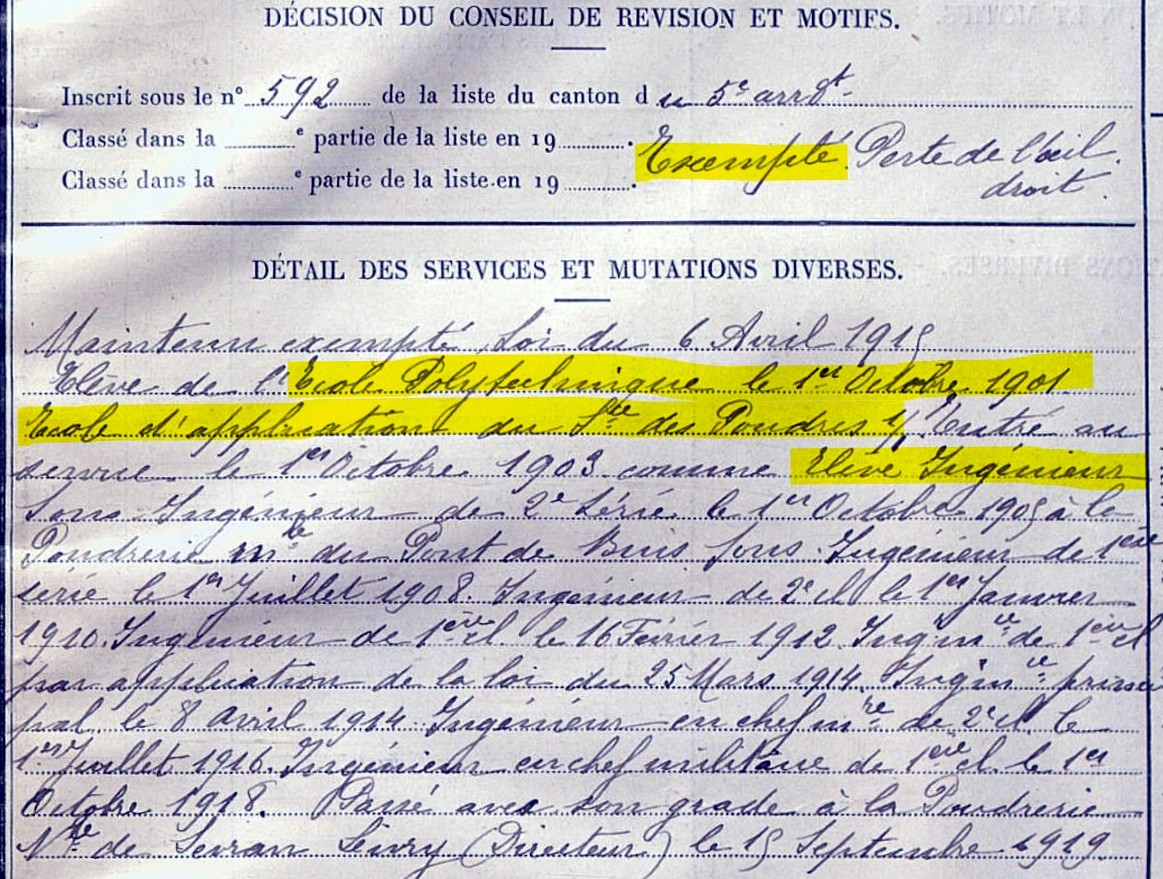 DÉCISION DU CONSEIL DE REVISION ET MOTIFS.
Inscrit sous le n° 592 de la liste du canton du 5e arrdt.
Classé dans la e partie de la liste en 19 .
Exempté Perte de l'œil
Classé dans la e partie de la liste en 19 .
droit.
DÉTAIL DES SERVICES ET MUTATIONS DIVERSES.
Maintenu exempté, Loi du 6 Avril 1915
Elève de l'Ecole Polytechnique le 1er Octobre 1901
Ecole d'application du Sce des Poudres Entré au
service le 1er Octobre 1903 comme Elève Ingénieur
Sous-Ingénieur de 2e Série le 1er Octobre 1905 à la
Poudrerie Nle du Pont de Buis sous-Ingénieur de 1ere
série le 1er Juillet 1908. Ingénieur de 2e cl le 1er Janvier
1910. Ingénieur de 1ère cl. le 16 Février 1912. Ingr mre de 1ère cl
par application de la loi du 25 Mars 1914. Ingr mre princi
pal le 8 Avril 1914. Ingénieur en chef mre de 2e cl. le
1er Juillet 1916. Ingénieur en chef militaire de 1ère cl. le 1er
Octobre 1918. Passé avec son grade à la Poudrerie
Nle de Sevran Livry (Directeur) le 15 Septembre 1919.